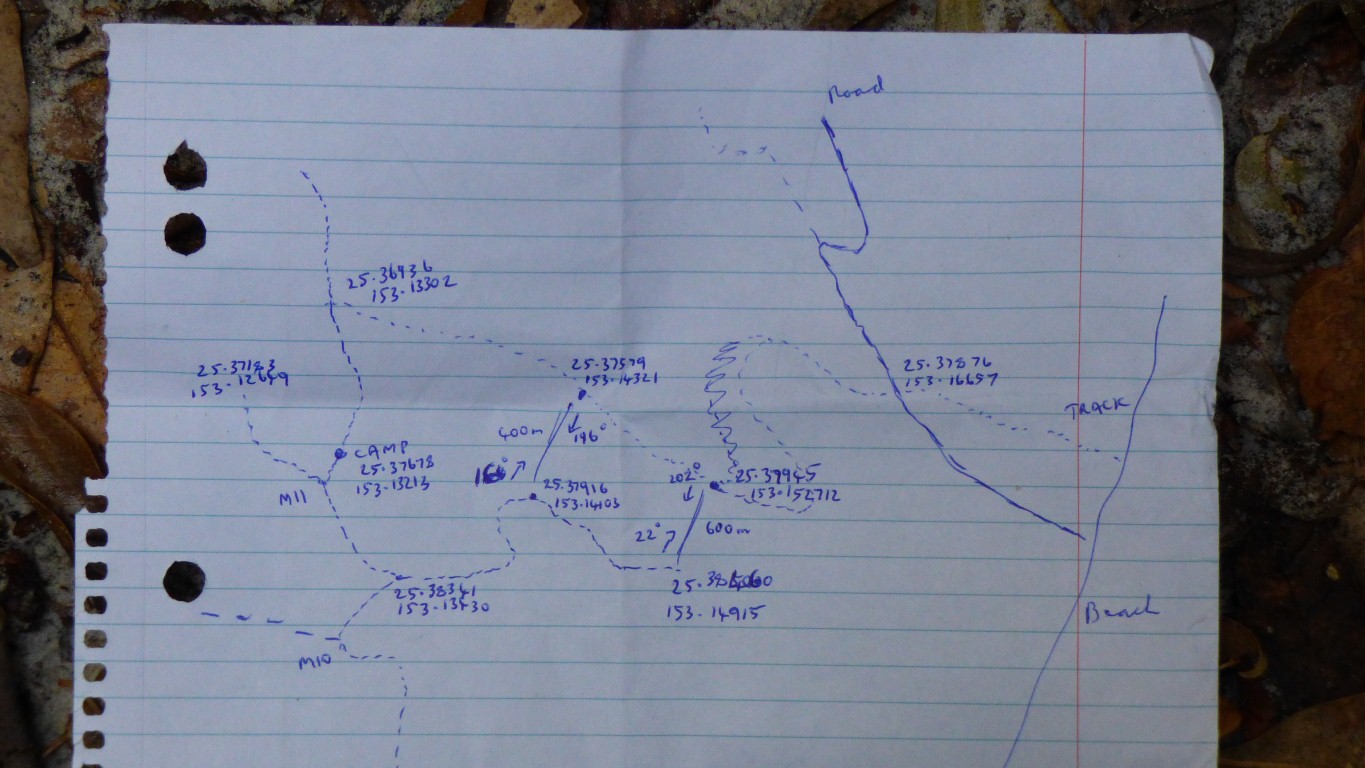 Road
25.36936
153.13302
25.37183
25.37579
153.14321
25.37876
153.16657
TRACK
400m
196°
CAMP
25.37678
153.13213
M11
16°
25.37916
153.14103
202°
25.37945
153.152712
22°
600m
25.38341
153.13430
153.14915
Beach
M10